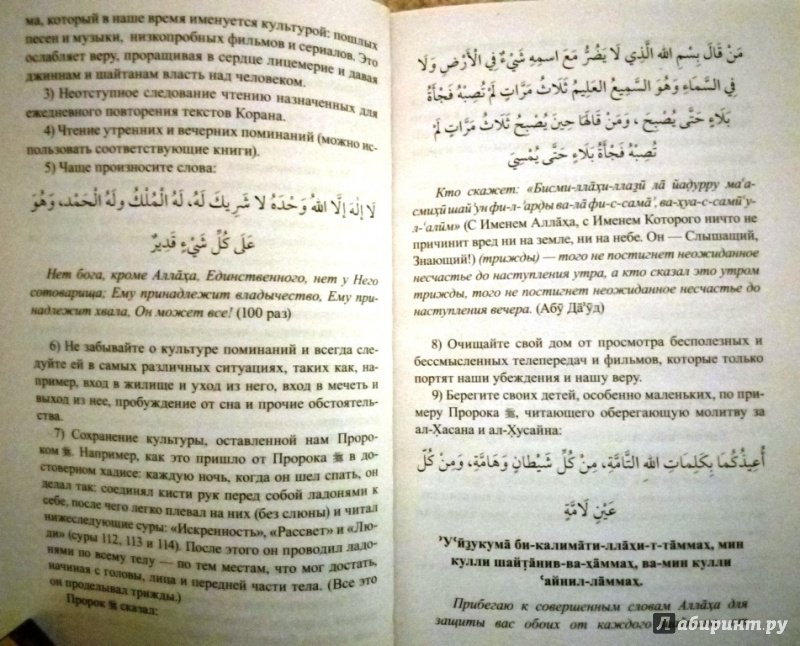 ма, который в наше время именуется культурой: пошлых
песен и музыки, низкопробных фильмов и сериалов. Это
ослабляет веру, проращивая в сердце лицемерие и давая
джиннам и шайтанам власть над человеком.
3) Неотступное следование чтению назначенных для
ежедневного повторения текстов Корана.
4) Чтение утренних и вечерних поминаний (можно ис-
пользовать соответствующие книги).
5) Чаще произносите слова:
لَا إِلَهَ إِلَّا اللهُ وَحْدَهُ لَا شَرِيكَ لَهُ، لَهُ الْمُلْكُ وَلَهُ الْحَمْدُ، وَهُوَ
عَلَى كُلِّ شَيْءٍ قَدِيرٌ
Нет бога, кроме Алла̄ха, Единственного, нет у Него
сотоварища; Ему принадлежит владычество, Ему при-
надлежит хвала, Он может все! (100 раз)
6) Не забывайте о культуре поминаний и всегда сле-
дуйте ей в самых различных ситуациях, таких как, на-
пример, вход в жилище и уход из него, вход в мечеть и
выход из нее, пробуждение от сна и прочие обстоятель-
ства.
7) Сохранение культуры, оставленной нам Проро-
ком ﷺ. Например, как это пришло от Пророка ﷺ в до-
стоверном хадисе: каждую ночь, когда он шел спать, он
делал так: соединял кисти рук перед собой ладонями к
себе, после чего легко плевал на них (без слюны) и читал
нижеследующие суры: «Искренность», «Рассвет» и «Лю-
ди» (суры 112, 113 и 114). После этого он проводил ладо-
нями по всему телу — по тем местам, что мог достать,
начиная с головы, лица и передней части тела. (Все это
он проделывал трижды.)
Пророк ﷺ сказал:
مَنْ قَالَ بِسْمِ اللهِ الَّذِي لَا يَضُرُّ مَعَ اسْمِهِ شَيْءٌ فِي الْأَرْضِ وَلَا
فِي السَّمَاءِ وَهُوَ السَّمِيعُ الْعَلِيمُ ثَلَاثَ مَرَّاتٍ لَمْ تُصِبْهُ فَجْأَةُ
بَلَاءٍ حَتَّى يُصْبِحَ ، وَمَنْ قَالَهَا حِينَ يُصْبِحُ ثَلَاثَ مَرَّاتٍ لَمْ
تُصِبْهُ فَجْأَةُ بَلَاءٍ حَتَّى يُمْسِيَ
Кто скажет: «Бисми-лла̄хи-ллаз̱ӣ ла̄ йад̣урру ма‘а-
смихӣ шай’ун фи-л-’ард̣ы ва-ла̄ фи-с-сама̄’, ва-хуа-с-самӣ‘у-
л-‘алӣм» (С Именем Алла̄ха, с Именем Которого ничто не
причинит вред ни на земле, ни на небе. Он — Слышащий,
Знающий!) (трижды) — того не постигнет неожиданное
несчастье до наступления утра, а кто сказал это утром
трижды, того не постигнет неожиданное несчастье до
наступления вечера. (Абӯ Да̄’ӯд)
8) Очищайте свой дом от просмотра бесполезных и
бессмысленных телепередач и фильмов, которые только
портят наши убеждения и нашу веру.
9) Берегите своих детей, особенно маленьких, по при-
меру Пророка ﷺ, читающего оберегающую молитву за
ал-Х̣асана и ал-Х̣усайна:
أُعِيذُكُمَا بِكَلِمَاتِ اللهِ التَّامَّةِ، مِنْ كُلِّ شَيْطَانٍ وَهَامَّةٍ، وَمِنْ كُلِّ
عَيْنٍ لَامَّةٍ
’У‘йз̱укума̄ би-калима̄ти-лла̄хи-т-та̄ммах, мин
кулли шайт̣а̄нив-ва-ха̄ммах, ва-мин кулли
‘айнил-ла̄ммах.
Прибегаю к совершенным словам Алла̄ха для
защиты вас обоих от каждого
Лабиринт.ру